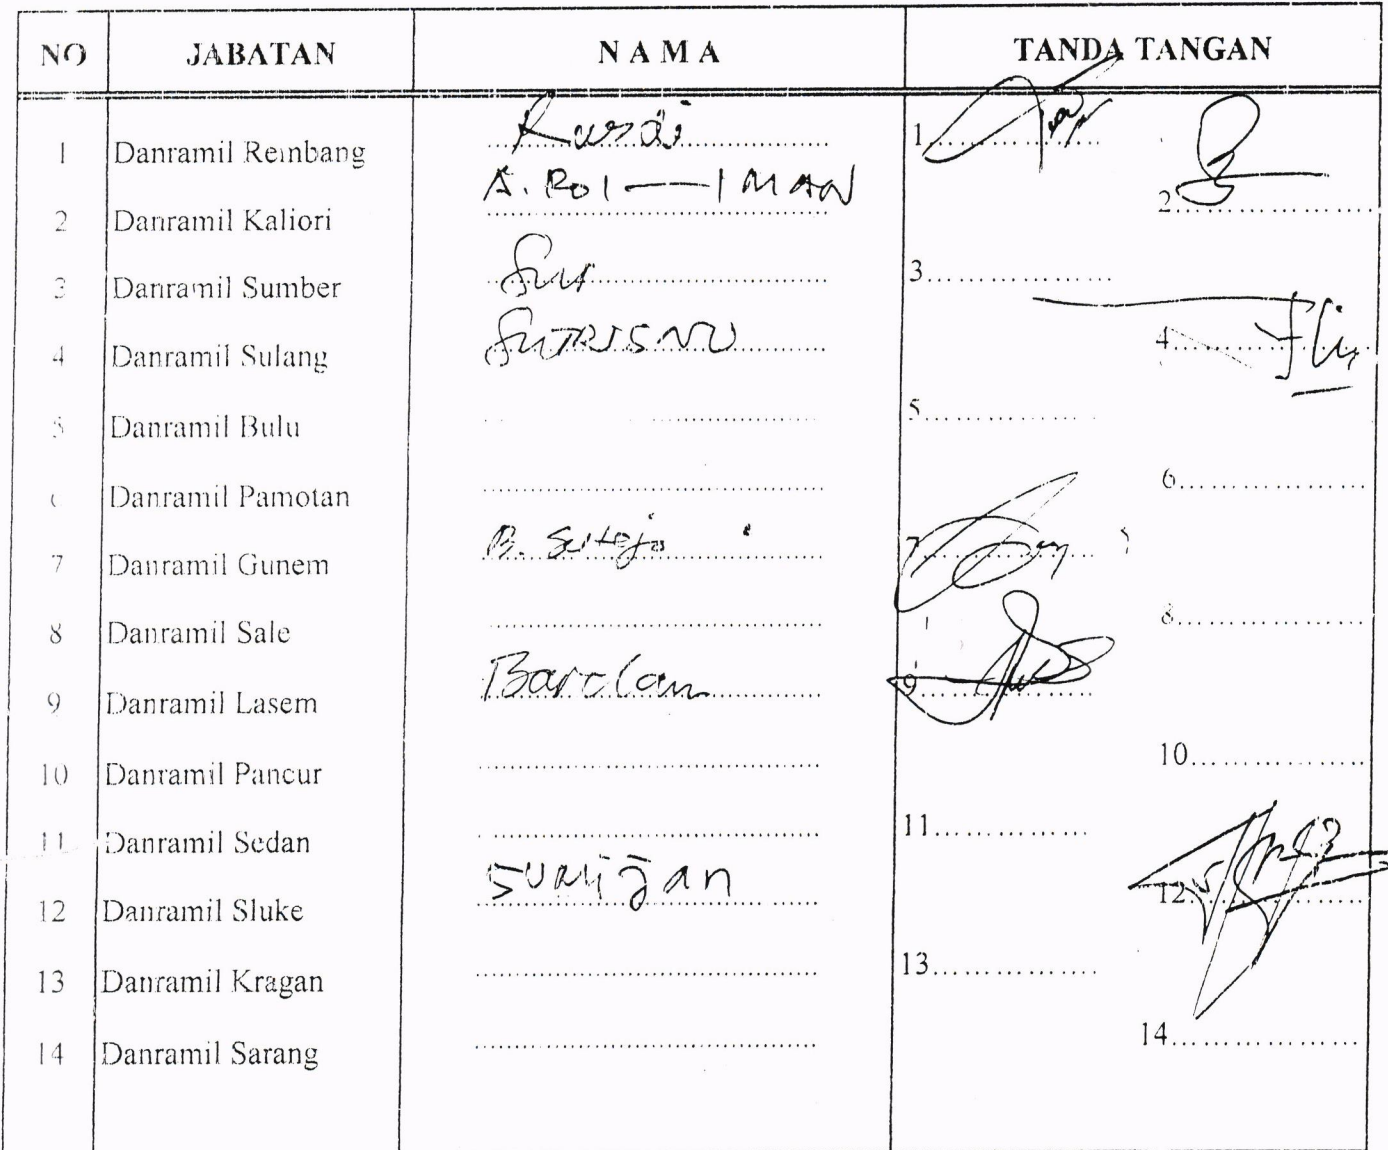 NO JABATAN NAMA TANDA TANGAN
1 Danramil Rembang Rusdi 1
2 Danramil Kaliori A. ROI — IMAN 2
3 Danramil Sumber Sur 3
4 Danramil Sulang SUTRISNO 4
5 Danramil Bulu 5
6 Danramil Pamotan 6
7 Danramil Gunem B. Sutejo 7
8 Danramil Sale 8
9 Danramil Lasem 9
10 Danramil Pancur 10
11 Danramil Sedan 11
12 Danramil Sluke 12
13 Danramil Kragan 13
14 Danramil Sarang 14